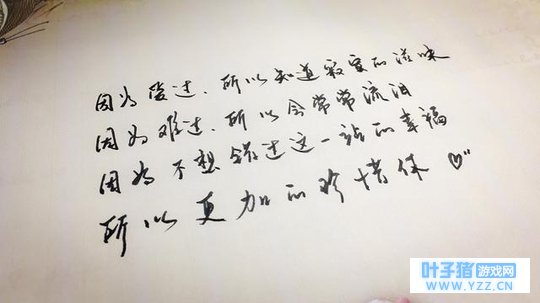 因为爱过、所以知道寂寞的滋味
因为难过、所以会常常流泪
因为不想错过这一站的幸福
所以更加的珍惜你
叶子猪游戏网
WWW.YZZ.CN